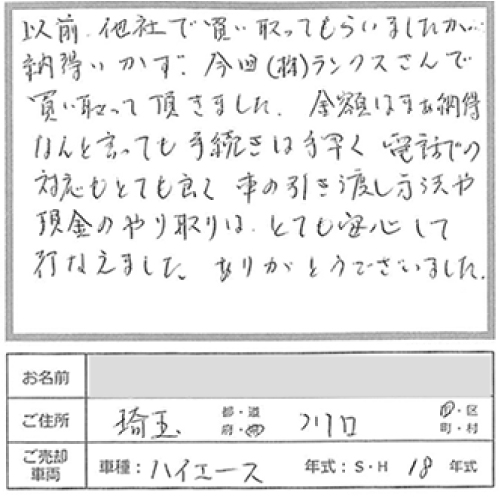 以前、他社で買い取ってもらいましたが、
納得いかず、今回(株)ランクスさんで
買い取って頂きました。金額はまぁ納得
なんと言っても手続きは手早く電話での
対応もとても良く車の引き渡し方法や
現金のやり取りは、とても安心して
行なえました。ありがとうございました。
お名前
ご住所 埼玉 都・道府・県 川口 市・区町・村
ご売却車両 車種:ハイエース 年式:S・H 18年式